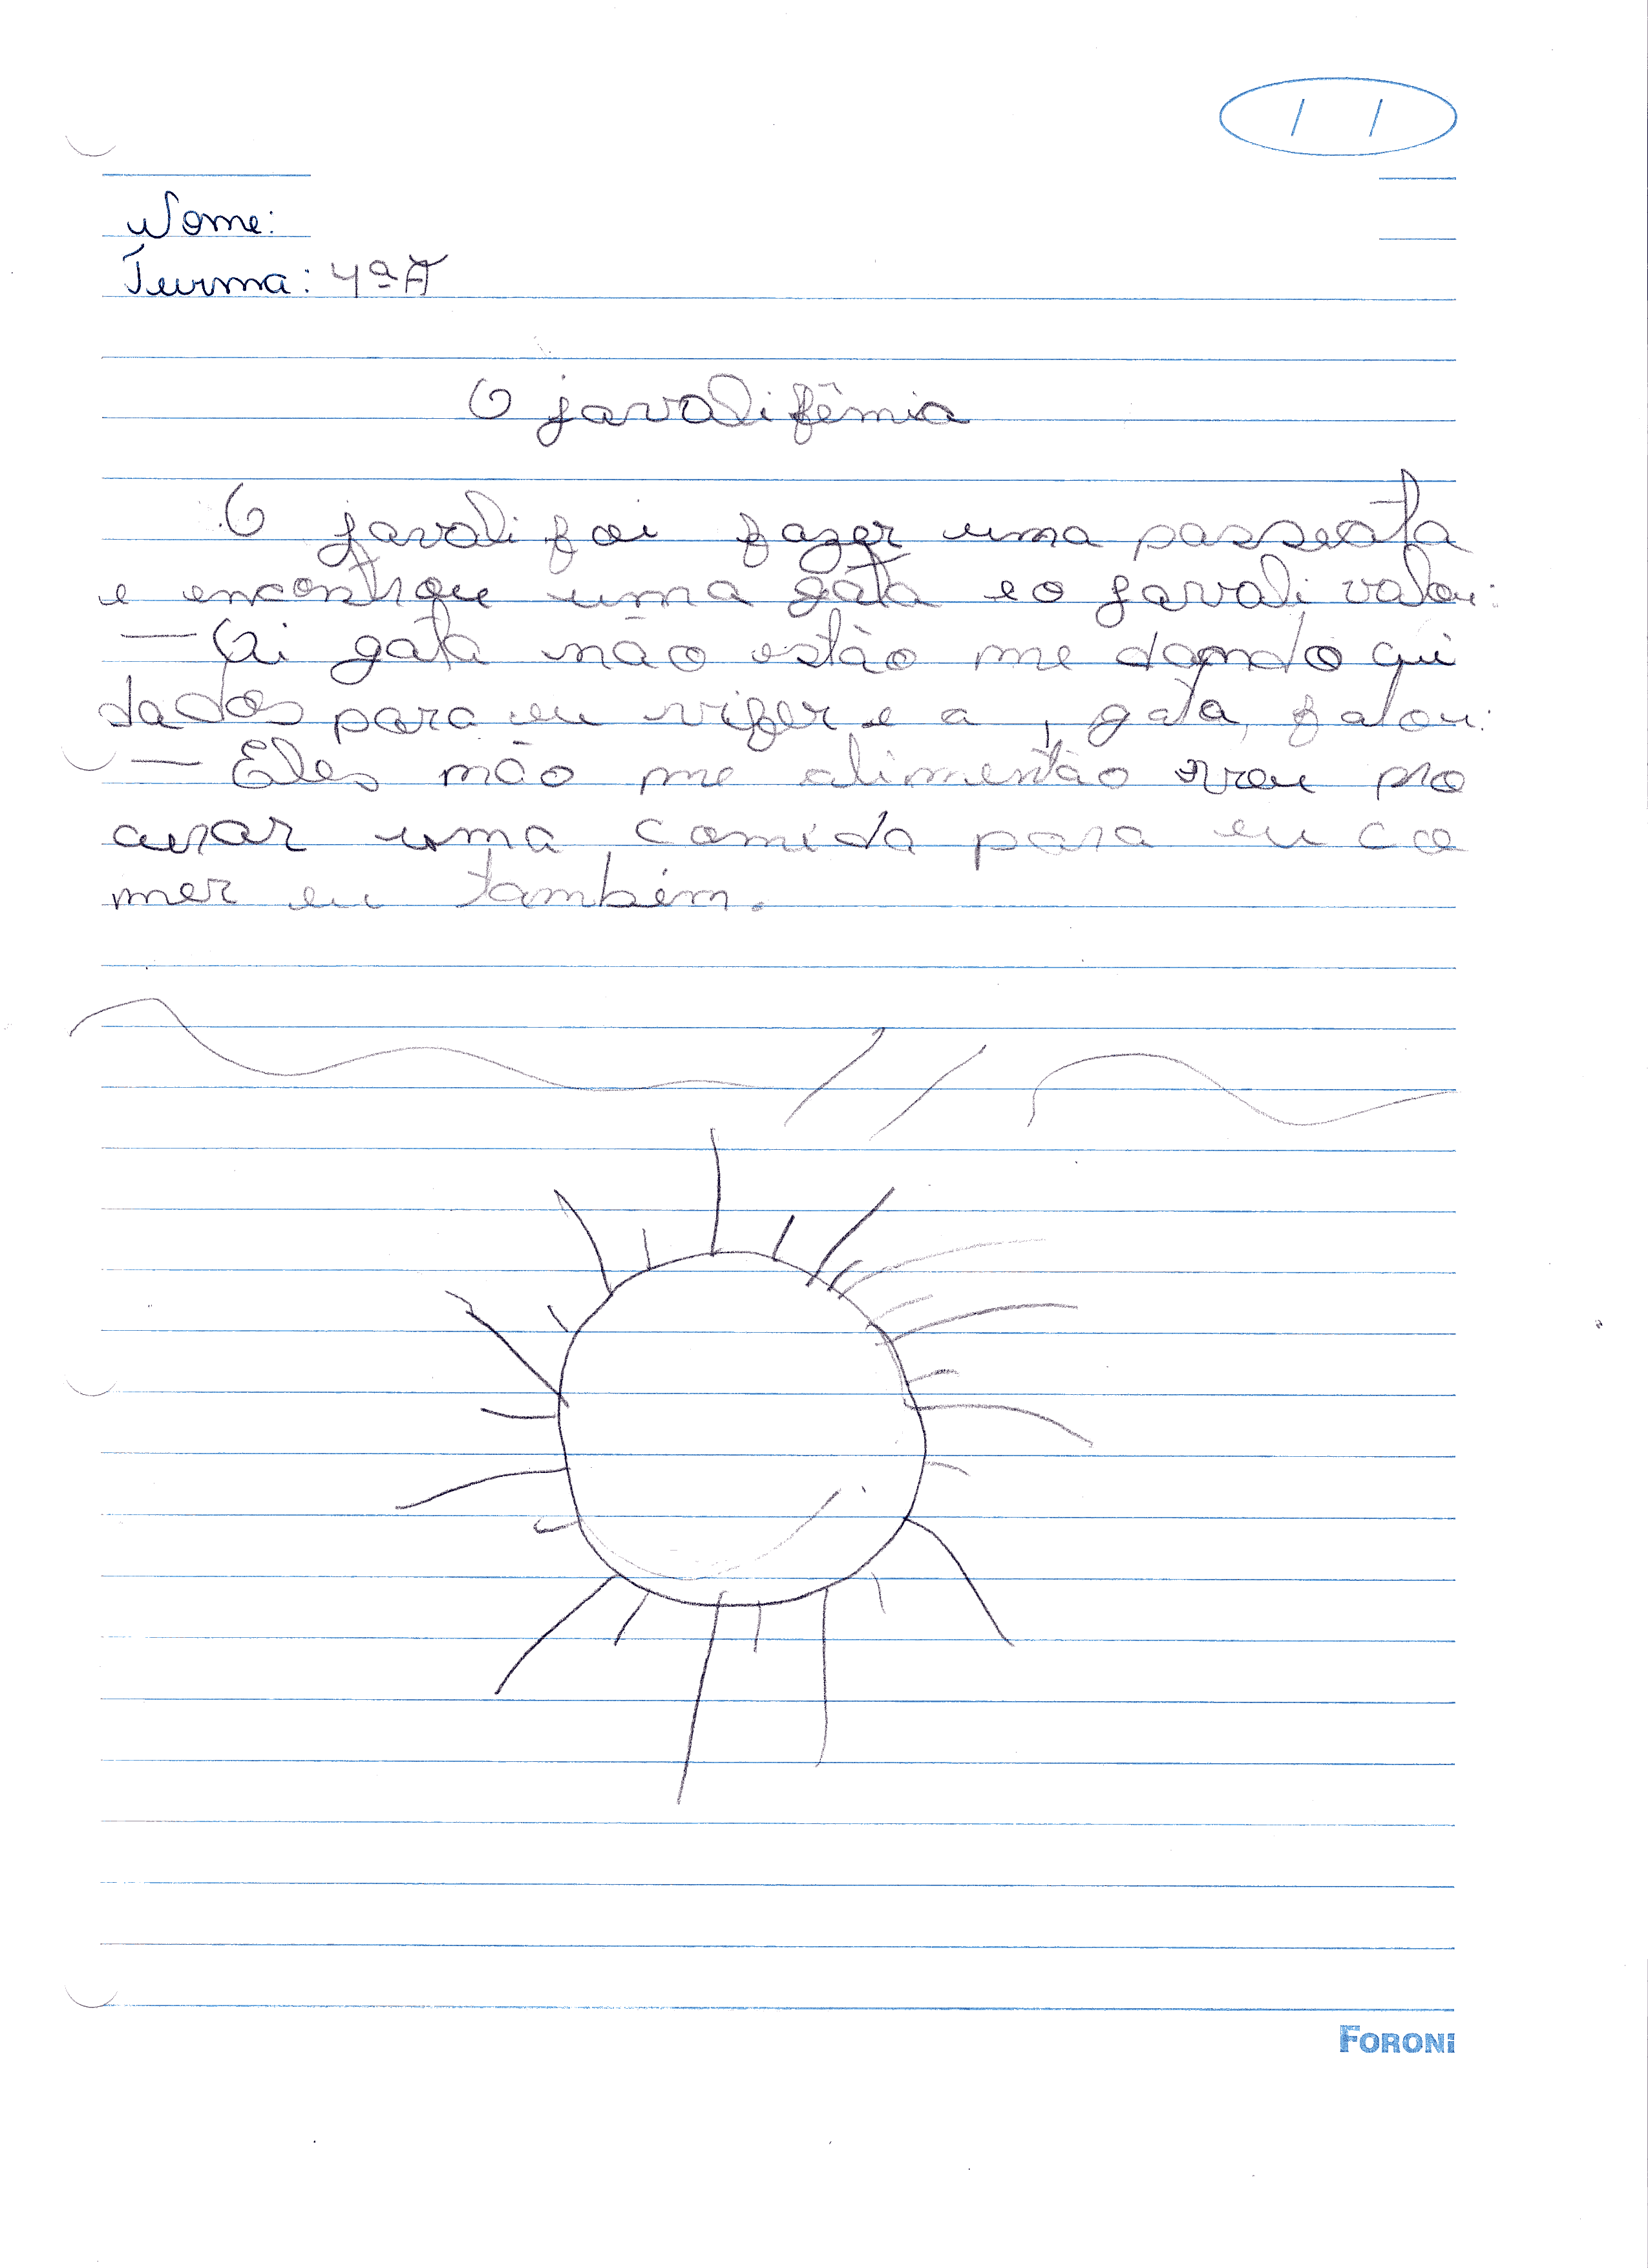 / /
Nome:
Turma: 4ª A
O javali fêmia
O javali foi fazer uma passeata
e encontrou uma gata e o javali valou:
— Oi gata não estão me dando qui
dados para eu vifer e a , gata, falou:
— Eles não me alimentão vou pro
curar uma comida para eu co
mer eu também.
FORONI